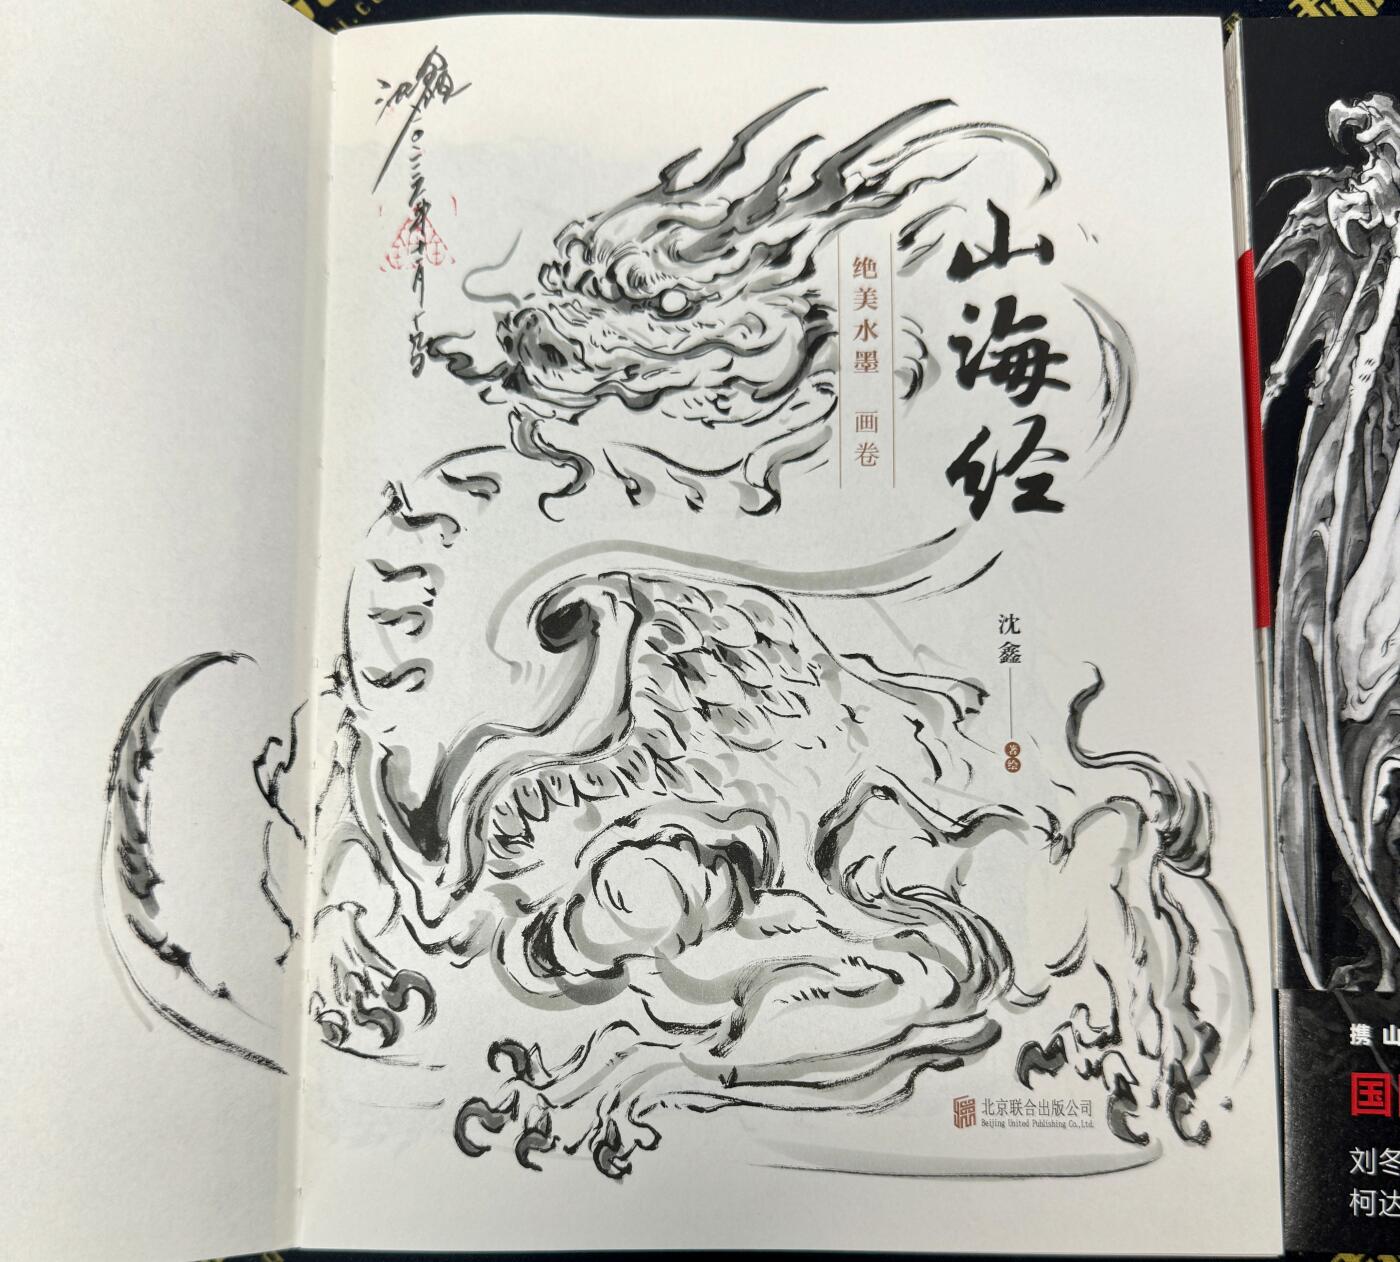 山海经
绝美水墨 画卷
沈鑫
著绘
沈鑫
北京联合出版公司
Beijing United Publishing Co.,Ltd.
携山
国
刘冬
柯达